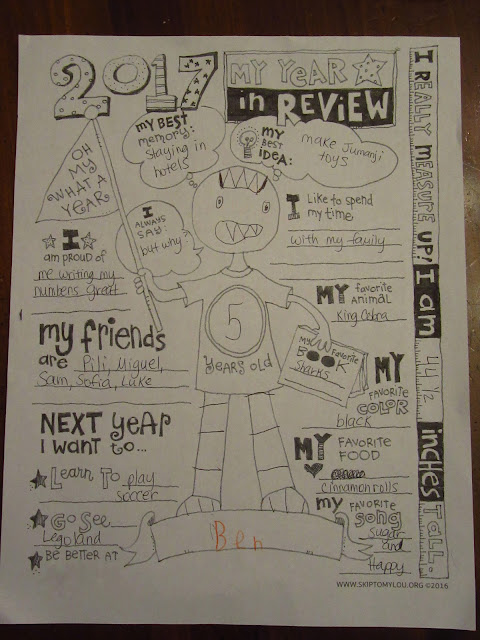 2017
MY YEAR
in REVIEW
OH
MY
WHAT A
YEAR
my BEST
memory:
Staying in
hotels
MY
BEST
IDEA:
make Jumanji
toys
I
ALWAYS
SAY:
but why
I
am proud of
me writing my
numbens great
I Like to spend
my time
with my family
MY favorite
animal
King Cobra
my friends
are Pili, Miguel,
Sam, Sofia, Luke
5
YEARS OLD
MY favorite
BOOK
Sharks
MY
FAVORITE
COLOR
black
NEXT YEAR
I want to...
LEARN TO play
soccer
GO SEE
Legoland
BE BETTER AT
MY FAVORITE
FOOD
cinnamon rolls
my FAVORITE
Song
Sugar
and
Happy
Ben
I REALLY MEASURE UP! I am 44 1/2 inches TALL.
WWW.SKIPTOMYLOU.ORG ©2016